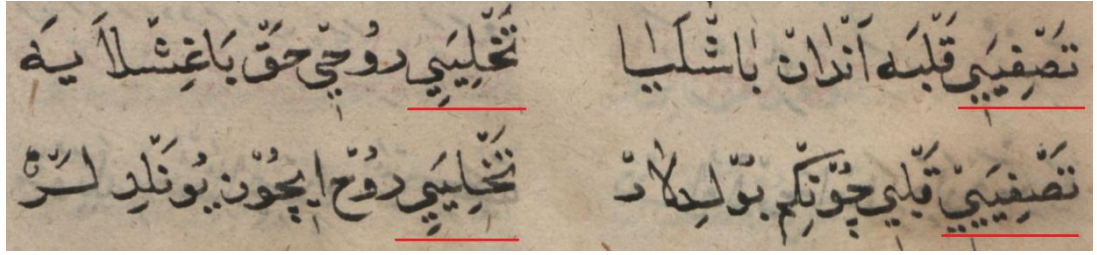 تَصْفِيَيِي قَلْبَه اَنْدَانْ بَاشْلَيَا تَخْلِيَيِي رُوحِي حَقّ بَاغِشْلاَ يَه
تَصْفِيَيِي قَلْبِي چُونْكِمْ بُولْدِلاَرْ تَخْلِيَيِي رُوحْ اِيچُونْ يُونَلْدِ لَرْ